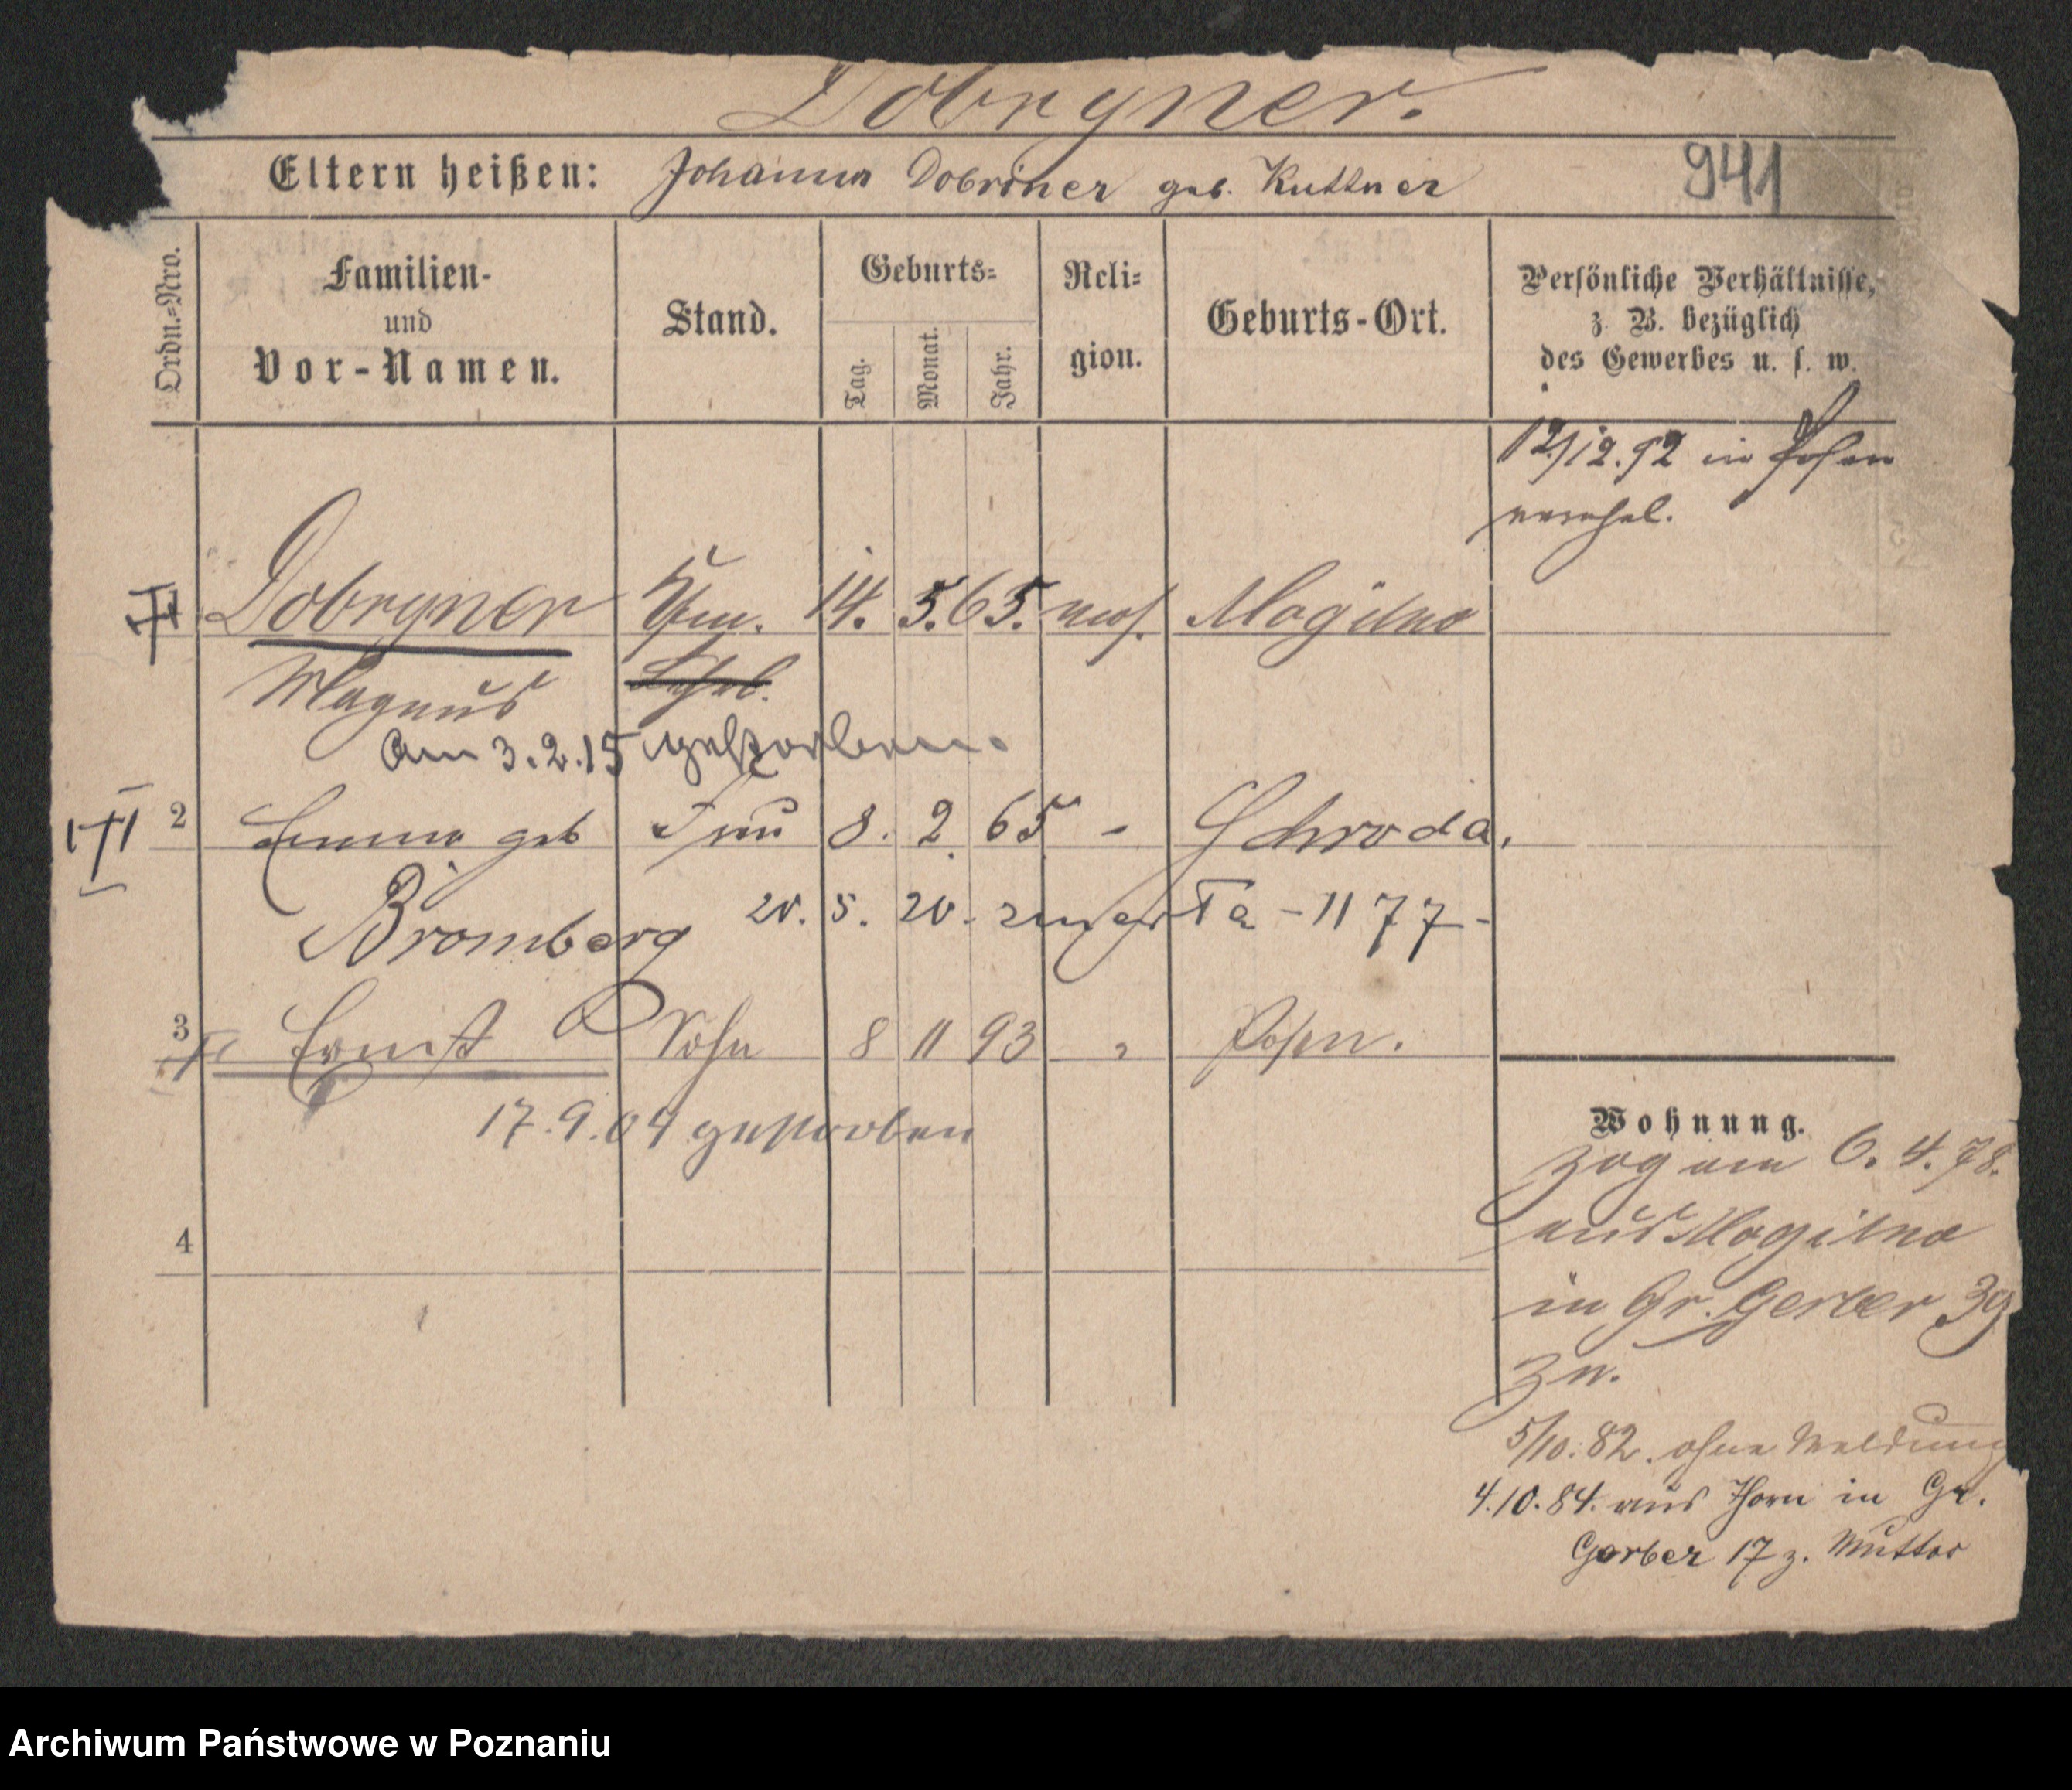 Dobryner.
Eltern heißen: Johanna Dobriner geb. Kuttner
941
Ordn.-Nro.
Familien-
und
Vor-Namen.
Stand.
Geburts-
Tag.
Monat.
Jahr.
Reli-
gion.
Geburts-Ort.
Persönliche Verhältnisse,
z. B. bezüglich
des Gewerbes u. s. w.
12/12.92 in Posen
verehel.
Dobryner Kfm. 14. 5. 65. mos. Mogilno
Magnus Lehrl.
Am 3.2.15 gestorben.
2 Emma geb Frau 8. 2. 65 - Schroda.
Bromberg 20. 5. 20. - 1177 -
3 Ernst Sohn 8 11 93 " Posen.
17.9.04 gestorben
4
Wohnung.
zog am 6. 4. 78.
aus Mogilno
in Gr. Gerber 39
zu.
5/10.82. ohne Meldung
4.10.84. aus Thorn in Gr.
Gerber 17 z. Mutter
Archiwum Państwowe w Poznaniu